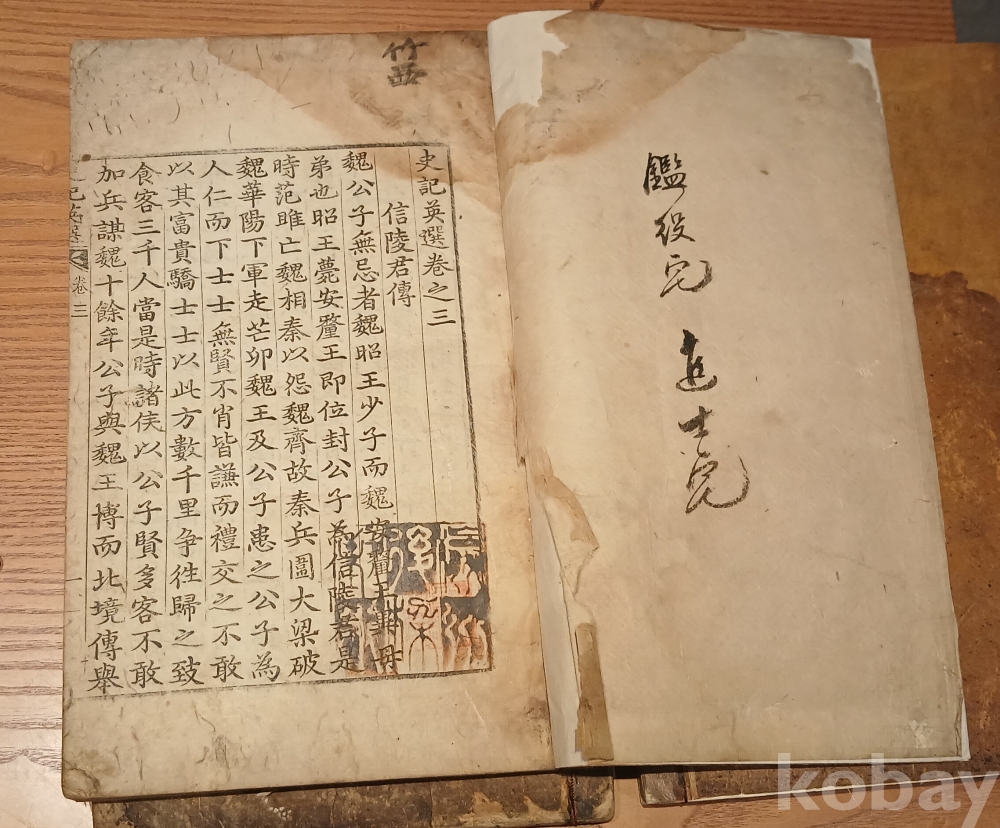 竹西
史記英選卷之三
信陵君傳
魏公子無忌者魏昭王少子而魏安釐王異母
弟也昭王薨安釐王即位封公子為信陵君是
時范雎亡魏相秦以怨魏齊故秦兵圍大梁破
魏華陽下軍走芒卯魏王及公子患之公子為
人仁而下士士無賢不肖皆謙而禮交之不敢
以其富貴驕士士以此方數千里爭徃歸之致
食客三千人當是時諸侯以公子賢多客不敢
加兵謀魏十餘年公子與魏王博而北境傳舉
卷三
一
kobay